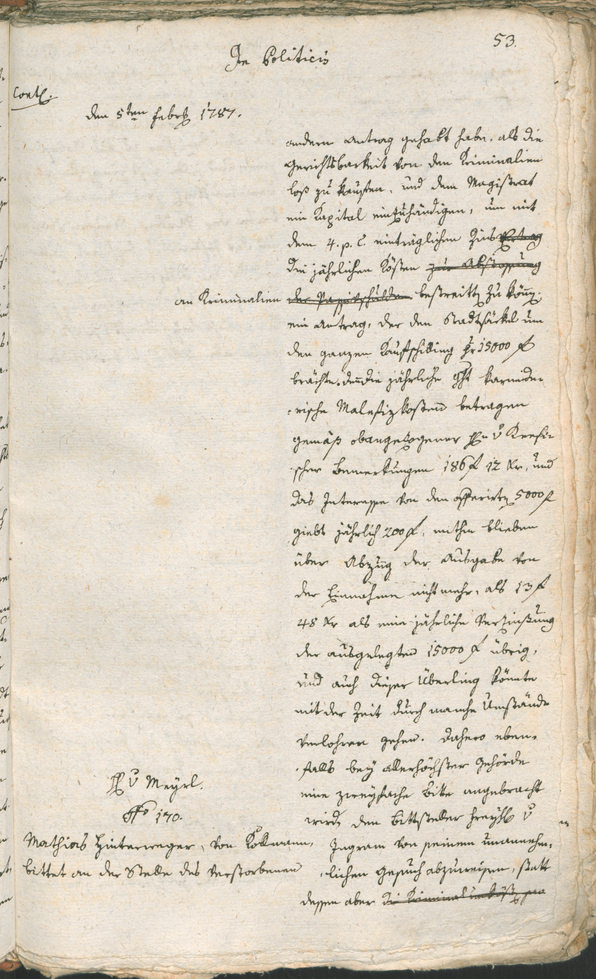 53.
In Politicis
Cont.
den 5ten Febr. 1787.
andern Antrag gehabt habe, als die
Gerichtsbarkeit von den Kriminalien
loß zu kaufen, und dem Magistrat
ein Kapital einzuhändigen, um mit
dem 4. p. C einträglichen Zins
die jährlichen Kösten
an Kriminalien bestreitten zu könen,
ein Antrag, der den Stadtsäckel um
den ganzen Kaufschilling pr 15000 f
brächte. denn die jährliche
Malefizkosten betragen
gemäß obangezogener
Bemerkungen 186 f 12 kr, und
das Interesse von den offerirten 5000 f
giebt jährlich 200 f, mithin blieben
über Abzug der Ausgabe von
der Einnahme nicht mehr, als 13 f
48 kr als eine jährliche Verzinßung
der ausgelegten 15000 f übrig,
und auch dieser Überling könnte
mit der Zeit durch manche Umstände
verlohren gehen. Dahero eben-
falls bey allerhöchster Behörde
eine zweyfache Bitte angebracht
wird, den Bittsteller Freyh. v
Ingram von seinem unannehm-
lichen Gesuch abzuweisen, statt
dessen aber die
v Meyrl.
170.
Mathias Hinterweger, von Kollmann,
bittet an der Stelle des verstorbenen